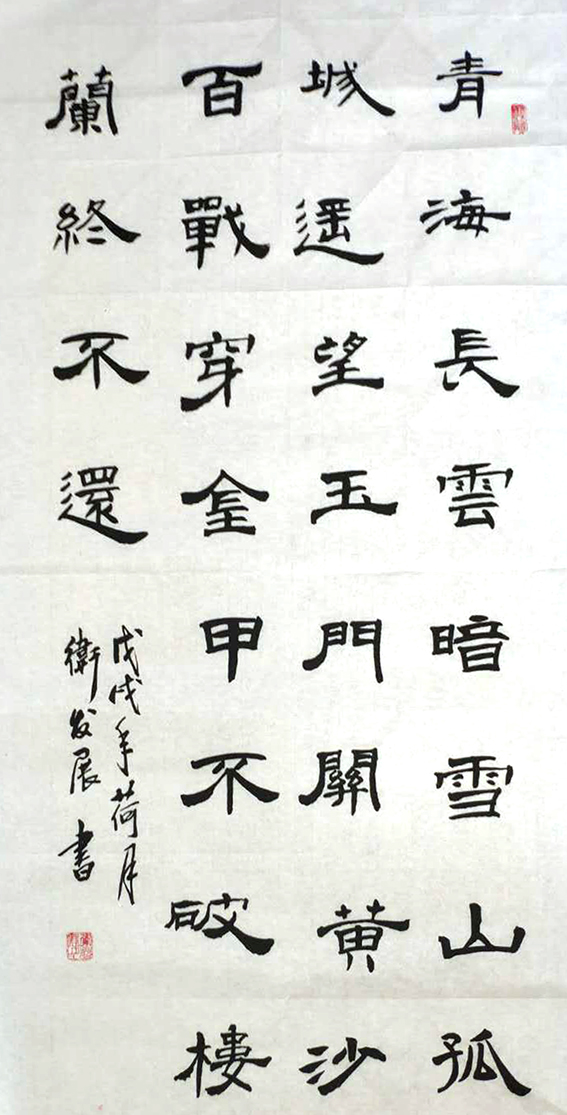 青海長雲暗雪山孤
城遥望玉門關黄沙
百戰穿金甲不破樓
蘭終不還
戊戌年荷月
衛发展書